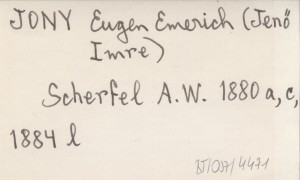 JONY Eugen Emerich (Jenő
Imre)
Scherfel A.W. 1880 a, c,
1884 l
BT/097/4471